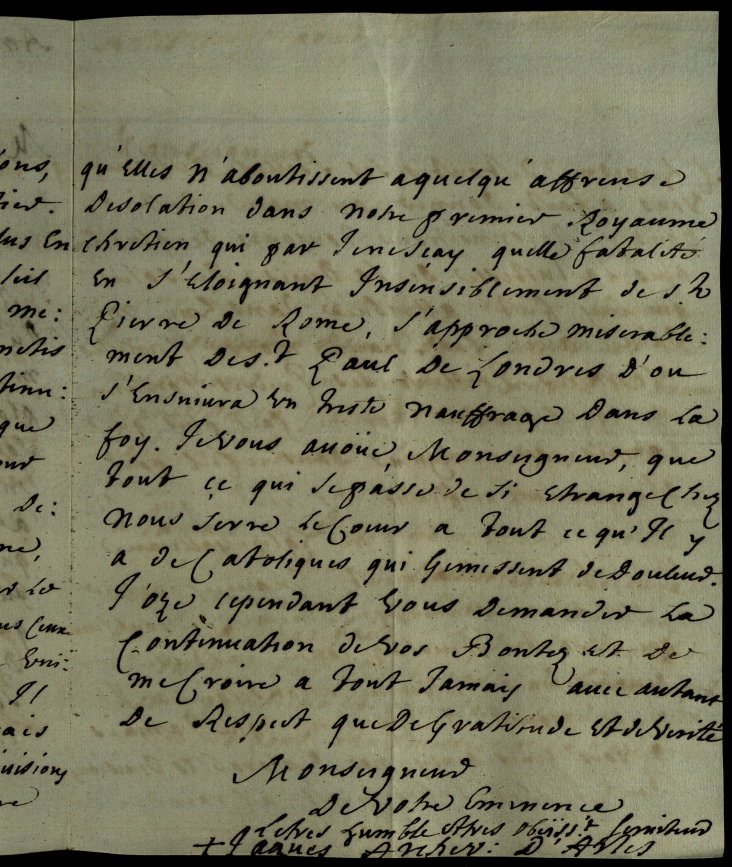 ons,
tier.
lus En
leil
me:
netis
tinu:
que
our
De:
ne,
er Le
us Ceux
Vni:
Il
ais
iuisions
re
qu'Elles n'aboutissent a quelqu'affreuse
Desolation dans Notre premier Royaume
Chretien qui par Jenescay quelle fatalité
En S'Eloignant Insensiblement de St
Pierre De Rome, S'approche miserable:
ment Des.t Paul De Londres D'ou
S'Ensuiura Vn triste Nauffrage Dans La
foy. Je Vous auoüe Monseigneur, que
tout ce qui Sepasse de Si Etrange Chez
Nous Serre Le Coeur a tout ce qu'Il y
a de Catoliques qui Gemissent de Douleur.
J'oze cependant Vous Demander La
Continuation de Vos Bontez et De
me Croire a tout Jamais auec autant
De Respect que De Gratitude et de Verité
Monseigneur
De Votre Eminence
Le tres humble et tres obeiss.t Seruiteur
+ Jaques Archev: D'Arles